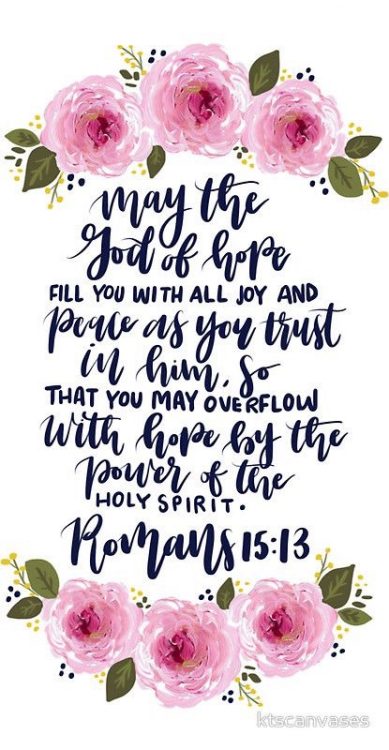 may the
God of hope
FILL YOU WITH ALL JOY AND
peace as you trust
in him, so
THAT YOU MAY OVERFLOW
with hope by the
power of the
HOLY SPIRIT.
Romans 15:13
ktscanvases